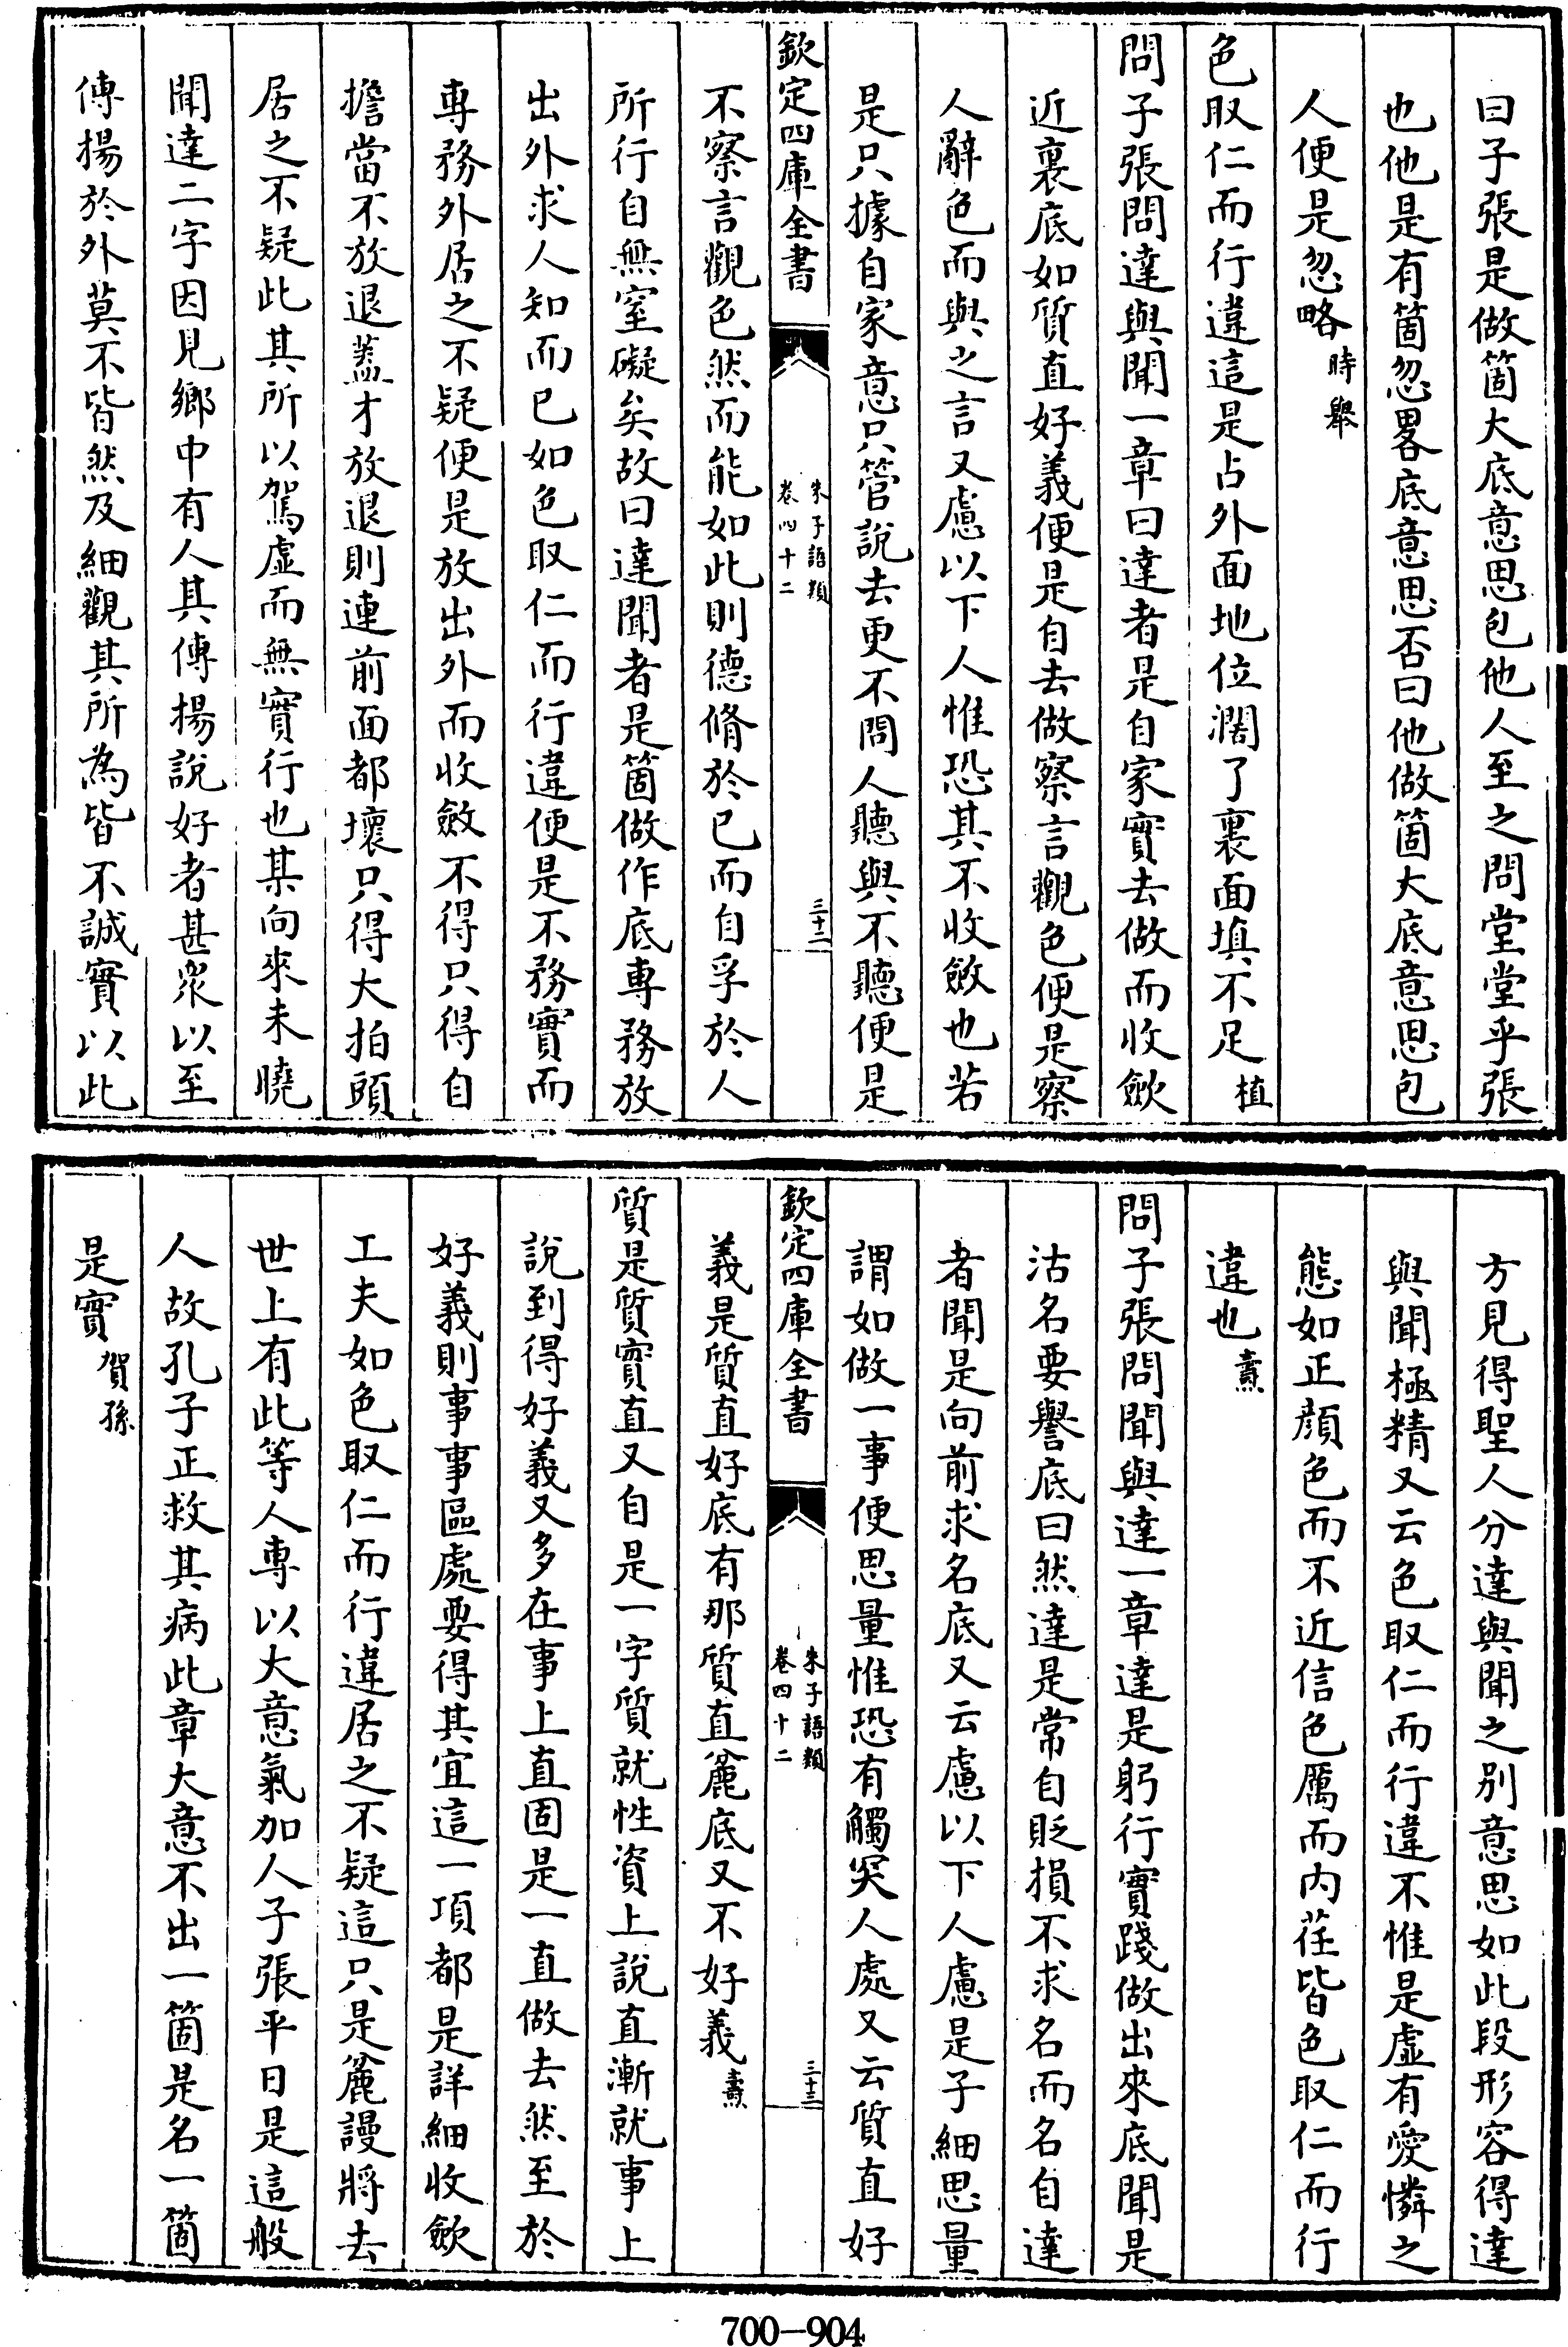 曰子張是做箇大底意思包他人至之問堂堂乎張
也他是有箇忽畧底意思否曰他做箇大底意思包
人便是忽略時舉
色取仁而行違這是占外面地位濶了裏面填不足植
問子張問達與聞一章曰達者是自家實去做而收歛
近裏底如質直好義便是自去做察言觀色便是察
人辭色而與之言又慮以下人惟恐其不收斂也若
是只據自家意只管說去更不問人聽與不聽便是
欽定四庫全書
朱子語類
卷四十二
三十二
不察言觀色然而能如此則德脩於已而自孚於人
所行自無窒礙矣故曰達聞者是箇做作底専務放
出外求人知而已如色取仁而行違便是不務實而
専務外居之不疑便是放出外而收斂不得只得自
擔當不放退蓋才放退則連前面都壞只得大拍頭
居之不疑此其所以駕虛而無實行也某向來未曉
聞達二字因見鄉中有人其傳揚說好者甚衆以至
傳揚於外莫不皆然及細觀其所為皆不誠實以此
方見得聖人分達與聞之别意思如此段形容得達
與聞極精又云色取仁而行違不惟是虛有愛憐之
態如正顔色而不近信色厲而内荏皆色取仁而行
違也燾
問子張問聞與達一章達是躬行實踐做出來底聞是
沽名要譽底曰然達是常自貶損不求名而名自達
者聞是向前求名底又云慮以下人慮是子細思量
謂如做一事便思量惟恐有觸突人處又云質直好
欽定四庫全書
朱子語類
卷四十二
三十三
義是質直好底有那質直麄底又不好義燾
質是質實直又自是一字質就性資上說直漸就事上
說到得好義又多在事上直固是一直做去然至於
好義則事事區處要得其宜這一項都是詳細收歛
工夫如色取仁而行違居之不疑這只是麄謾將去
世上有此等人専以大意氣加人子張平日是這般
人故孔子正救其病此章大意不出一箇是名一箇
是實賀孫
700-904